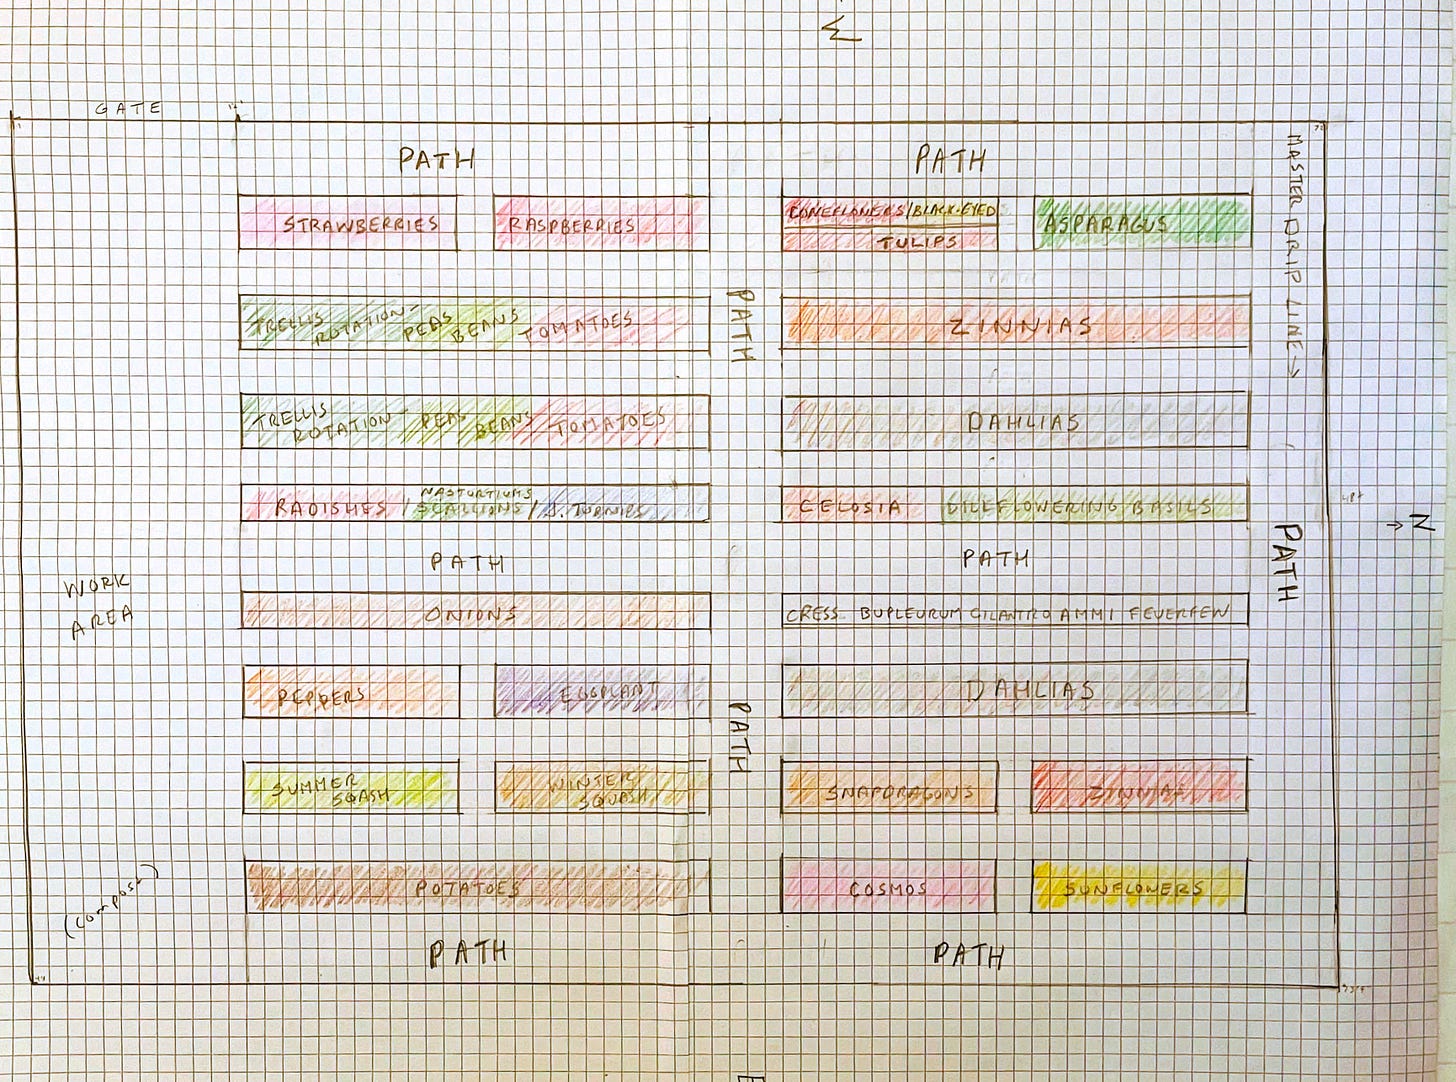 W
GATE
PATH
PATH
STRAWBERRIES
RASPBERRIES
CONEFLOWERS/BLACK-EYED
TULIPS
ASPARAGUS
MASTER DRIP LINE →
TRELLIS
ROTATION-
PEAS
BEANS
TOMATOES
PATH
ZINNIAS
TRELLIS
ROTATION-
PEAS
BEANS
TOMATOES
DAHLIAS
RADISHES /
NASTURTIUMS
SCALLIONS /
S. TURNIPS
CELOSIA
DILL FLOWERING BASILS
→ N
PATH
PATH
PATH
WORK
AREA
ONIONS
CRESS BUPLEURUM CILANTRO AMMI FEVERFEW
PEPPERS
EGGPLANT
PATH
DAHLIAS
SUMMER
SQASH
WINTER
SQUASH
SNAPDRAGONS
ZINNIAS
(compost)
POTATOES
COSMOS
SUNFLOWERS
PATH
PATH
E